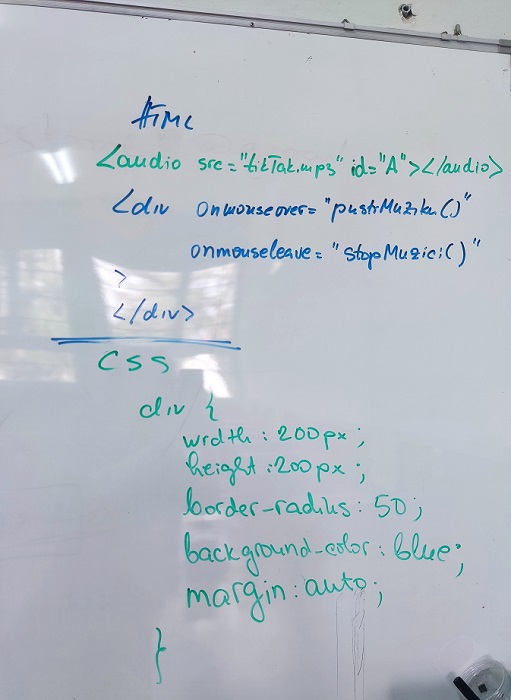 HTML
<audio src="tikTak.mp3" id="A"></audio>
<div onmouseover="pustiMuziku()"
onmouseleave="StopMuzici()"
>
</div>
CSS
div {
width: 200px;
height: 200px;
border-radius: 50;
background-color: blue;
margin: auto;
}